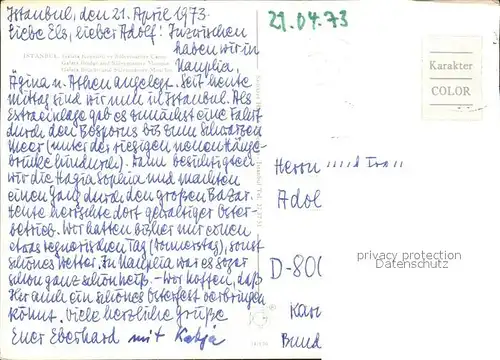 Istanbul, den 21. April 1973.
Liebe Els, lieber Adolf! Inzwischen
haben wir in
Nauplia,
Ägina u. Athen angelegt. Seit heute
mittag sind wir nun in Istanbul. Als
Extraeinlage gab es zunächst eine Fahrt
durch den Bosporus bis zum Schwarzen
Meer (unter der riesigen neuen Hänge-
brücke hindurch). Dann besichtigten
wir die Hagia Sophia und machten
einen Gang durch den großen Bazar.
Heute herrschte dort gewaltiger Oster-
betrieb. Wir hatten bisher nur einen
etwas regnerischen Tag (Donnerstag), sonst
schönes Wetter. In Nauplia war es sogar
schon ganz schön heiß. - Wir hoffen, daß
Ihr auch ein schönes Osterfest verbringen
könnt. Viele herzliche Grüße
Euer Eberhard mit Katja
ISTANBUL
21.04.73
Karakter
COLOR
Herrn und Frau
Adol
privacy protection
Datenschutz
D-800
Kar
Bund